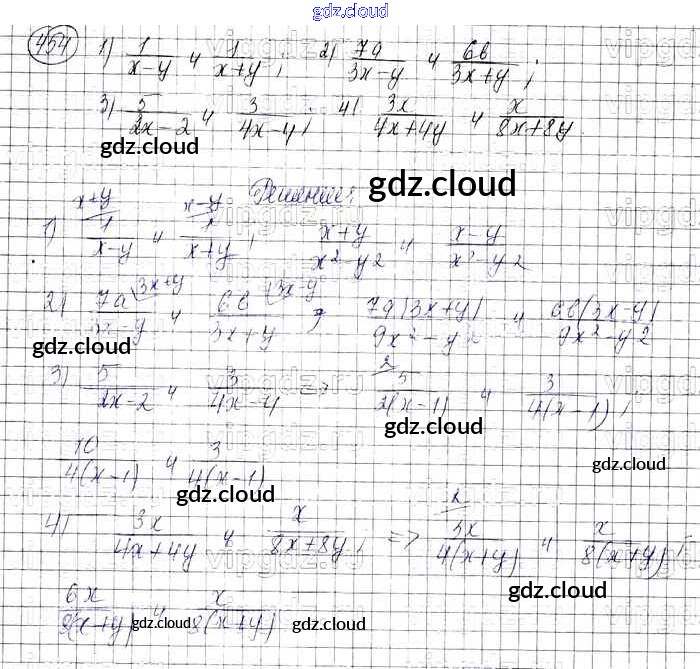 gdz.cloud
454 1) 1/(x-y) и 1/(x+y); 2) 7a/(3x-y) и 6b/(3x+y);
3) 5/(2x-2) и 3/(4x-4); 4) 3x/(4x+4y) и x/(8x+8y)
gdz.cloud
Решение: gdz.cloud
1) 1/(x-y) (x+y и 1/(x+y) (x-y; (x+y)/(x²-y²) и (x-y)/(x²-y²)
2) 7a/(3x-y) (3x+y и 6b/(3x+y) (3x-y => 7a(3x+y)/(9x²-y²) и 6b(3x-y)/(9x²-y²)
gdz.cloud
3) 5/(2x-2) и 3/(4x-4) => 5/(2(x-1)) (2 и 3/(4(x-1));
gdz.cloud
10/(4(x-1)) и 3/(4(x-1))
gdz.cloud
gdz.cloud
4) 3x/(4x+4y) и x/(8x+8y); => 3x/(4(x+y)) (2 и x/(8(x+y));
gdz.cloud
6x/(8(x+y)) и x/(8(x+y))
gdz.cloud gdz.cloud gdz.cloud